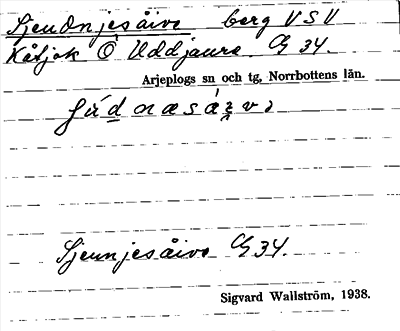 Sjeudnjesåive berg VSV
Kåtjok Ö Uddjaure. G 34.
Arjeplogs sn och tg, Norrbottens län.
Sjeunjesåive G 34.
Sigvard Wallström, 1938.